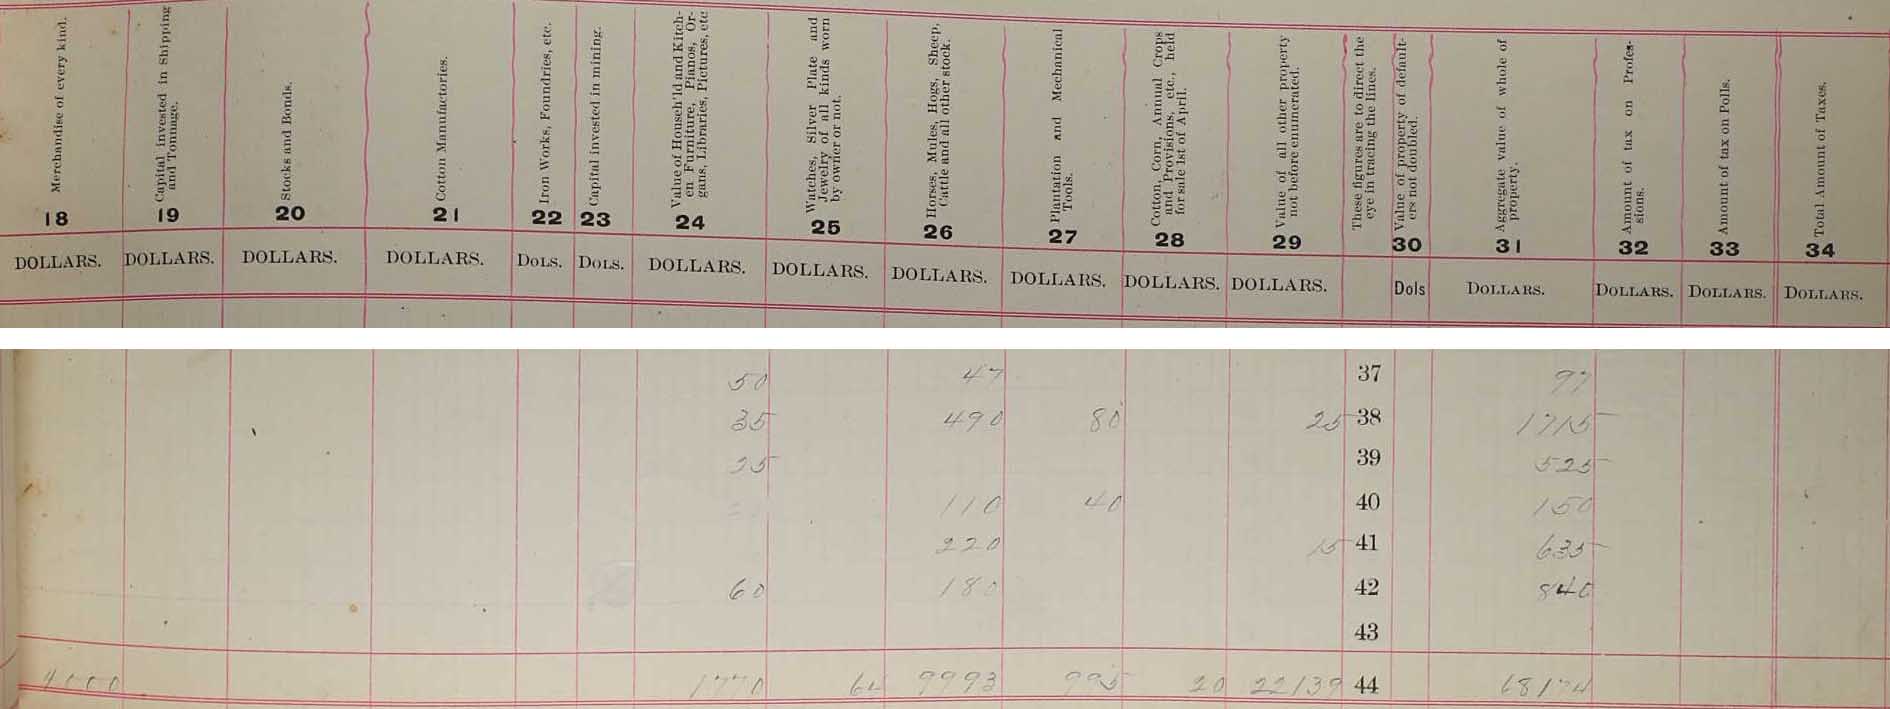 Merchandise of every kind.
Capital invested in Shipping
and Tonnage.
Stocks and Bonds.
Cotton Manufactories.
Iron Works, Foundries, etc.
Capital invested in mining.
Value of Househ'ld and Kitch-
en Furniture, Pianos, Or-
gans, Libraries, Pictures, etc
Watches, Silver Plate and
Jewelry of all kinds worn
by owner or not.
Horses, Mules, Hogs, Sheep,
Cattle and all other stock.
Plantation and Mechanical
Tools.
Cotton, Corn, Annual Crops
and Provisions, etc., held
for sale 1st of April.
Value of all other property
not before enumerated.
These figures are to direct the
eye in tracing the lines.
Value of property of default-
ers not doubled.
Aggregate value of whole of
property.
Amount of tax on Profes-
sions.
Amount of tax on Polls.
Total Amount of Taxes.
18 19 20 21 22 23 24 25 26 27 28 29 30 31 32 33 34
DOLLARS. DOLLARS. DOLLARS. DOLLARS. DOLS. DOLS. DOLLARS. DOLLARS. DOLLARS. DOLLARS. DOLLARS. DOLLARS. Dols DOLLARS. DOLLARS. DOLLARS. DOLLARS.
50 47 37 97
35 490 80 25 38 1715
25 39 525
110 40 40 150
220 15 41 635
60 180 42 840
43
4000 1770 9993 995 20 22139 44 68174